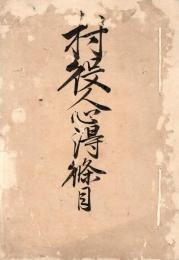 村役人心得條目